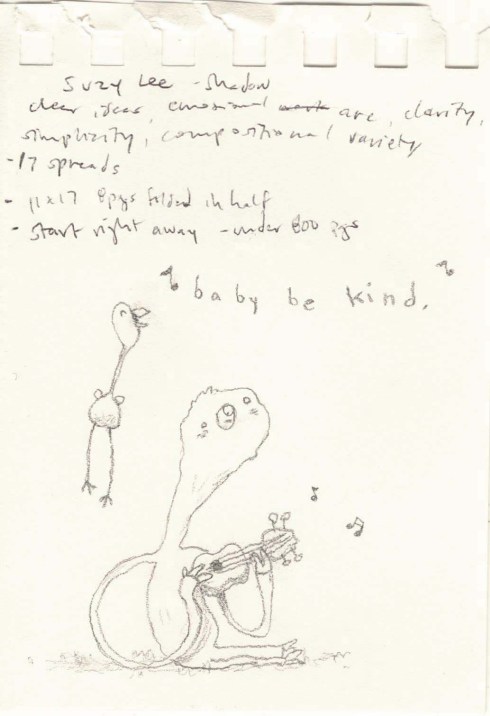 Suzy Lee - Shadow
clear ideas, emosional work arc, clarity,
simplicity, compositional variety
- 17 spreads
- 11x17 8pgs folded in half
- Start right away - under 800 pgs
"baby be kind."